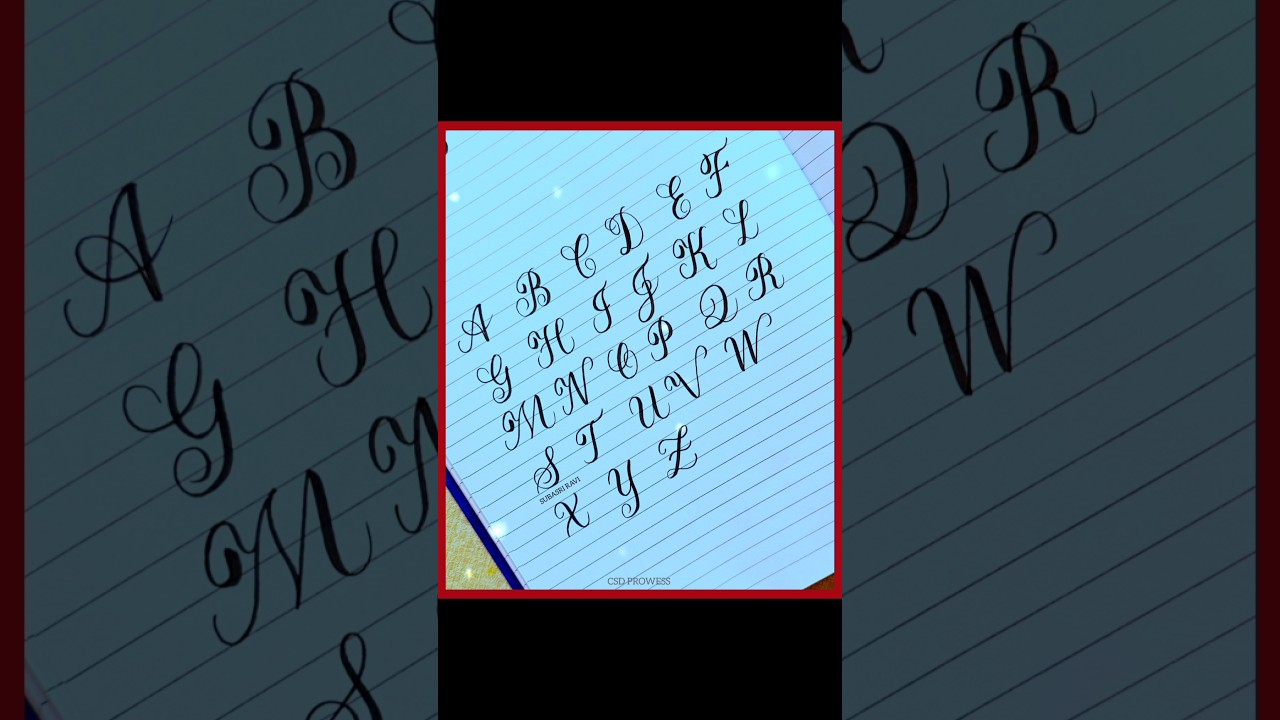 A B C D E F
G H I J K L
M N O P Q R
S T U V W
SUBASRI RAVI
X Y Z
CSD PROWESS